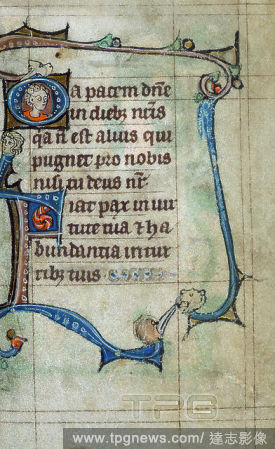 Da pacem dñe
in dieb; nr̃is
q̃a ñ est alius qui
pugnet pro nobis
nisi tu deus nr̃
Fiat pax in uir
tute tua & ha
bundantia in tur
rib; tuis
TPG
www.tpgnews.com/達志影像